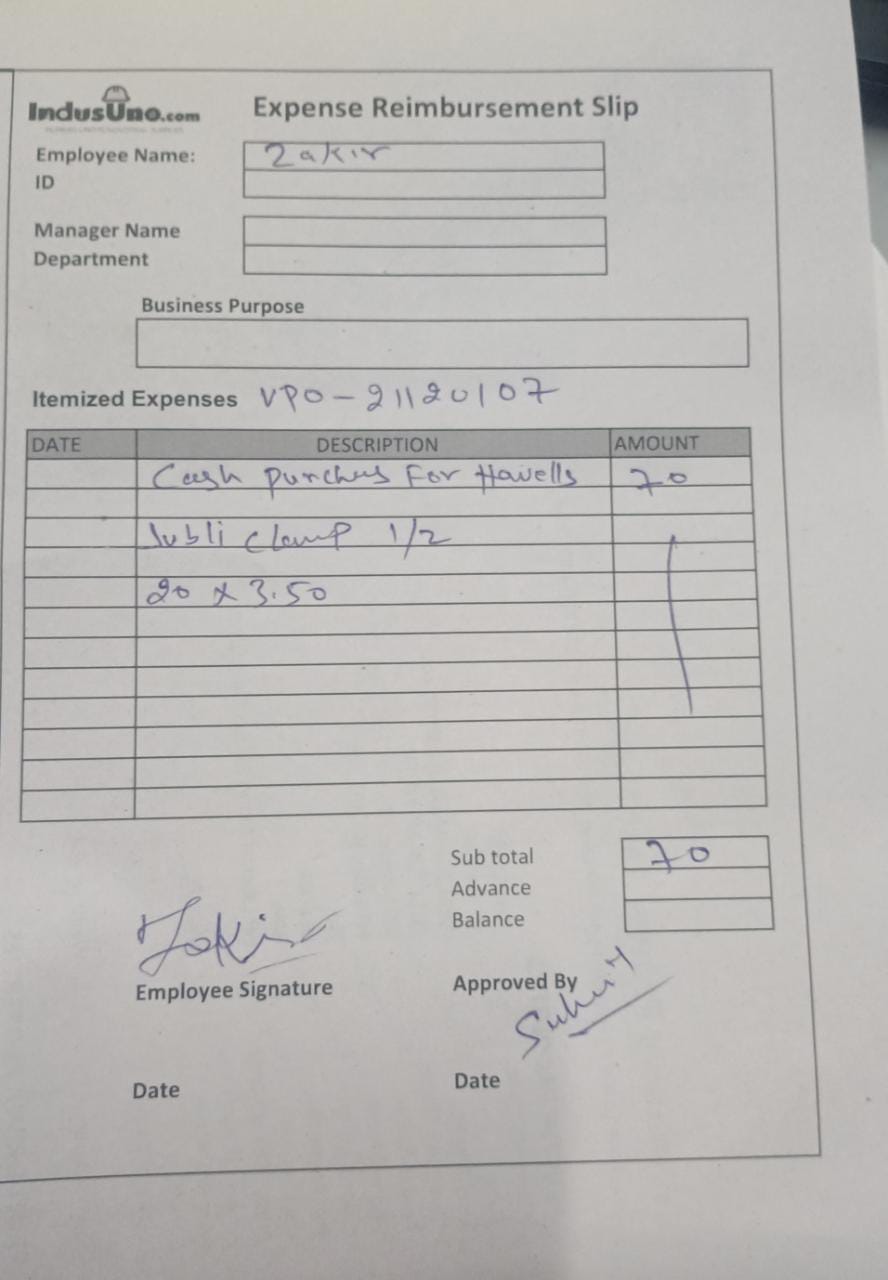 IndusUno.com
Expense Reimbursement Slip
Employee Name: Zakir
ID
Manager Name
Department
Business Purpose
Itemized Expenses VPO-21120107
DATE DESCRIPTION AMOUNT
Cash Purchas For Havells 70
Jubli clamp 1/2
20 x 3.50
Sub total 70
Advance
Balance
Zakir
Employee Signature
Approved By
Date
Date